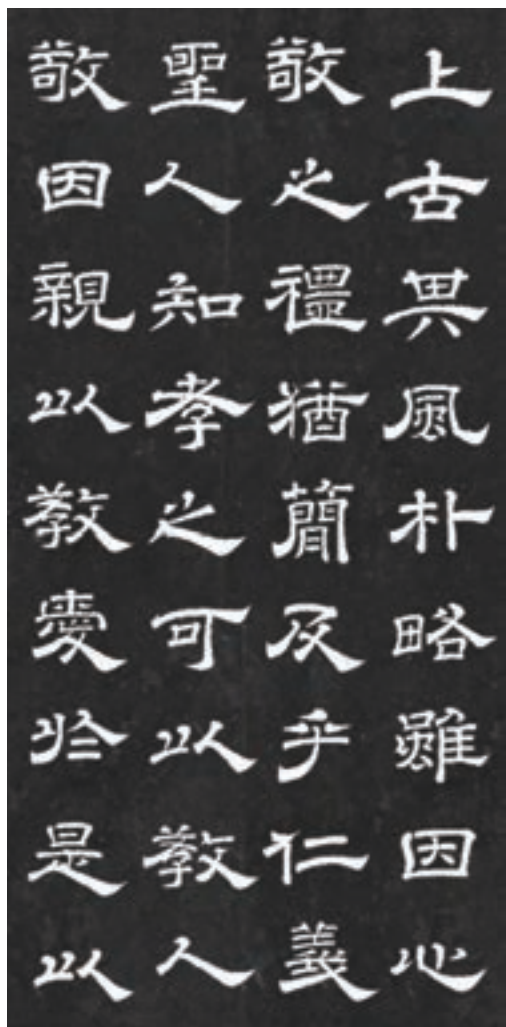 上古其風朴略雖因心
敬之禮猶簡及乎仁義
聖人知孝之可以教人
敬因親以教愛於是以